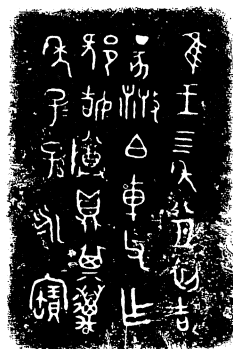 隹王四年八月初吉
丁亥散白車父乍
邪姞尊鼎其萬
年子子孫永寶